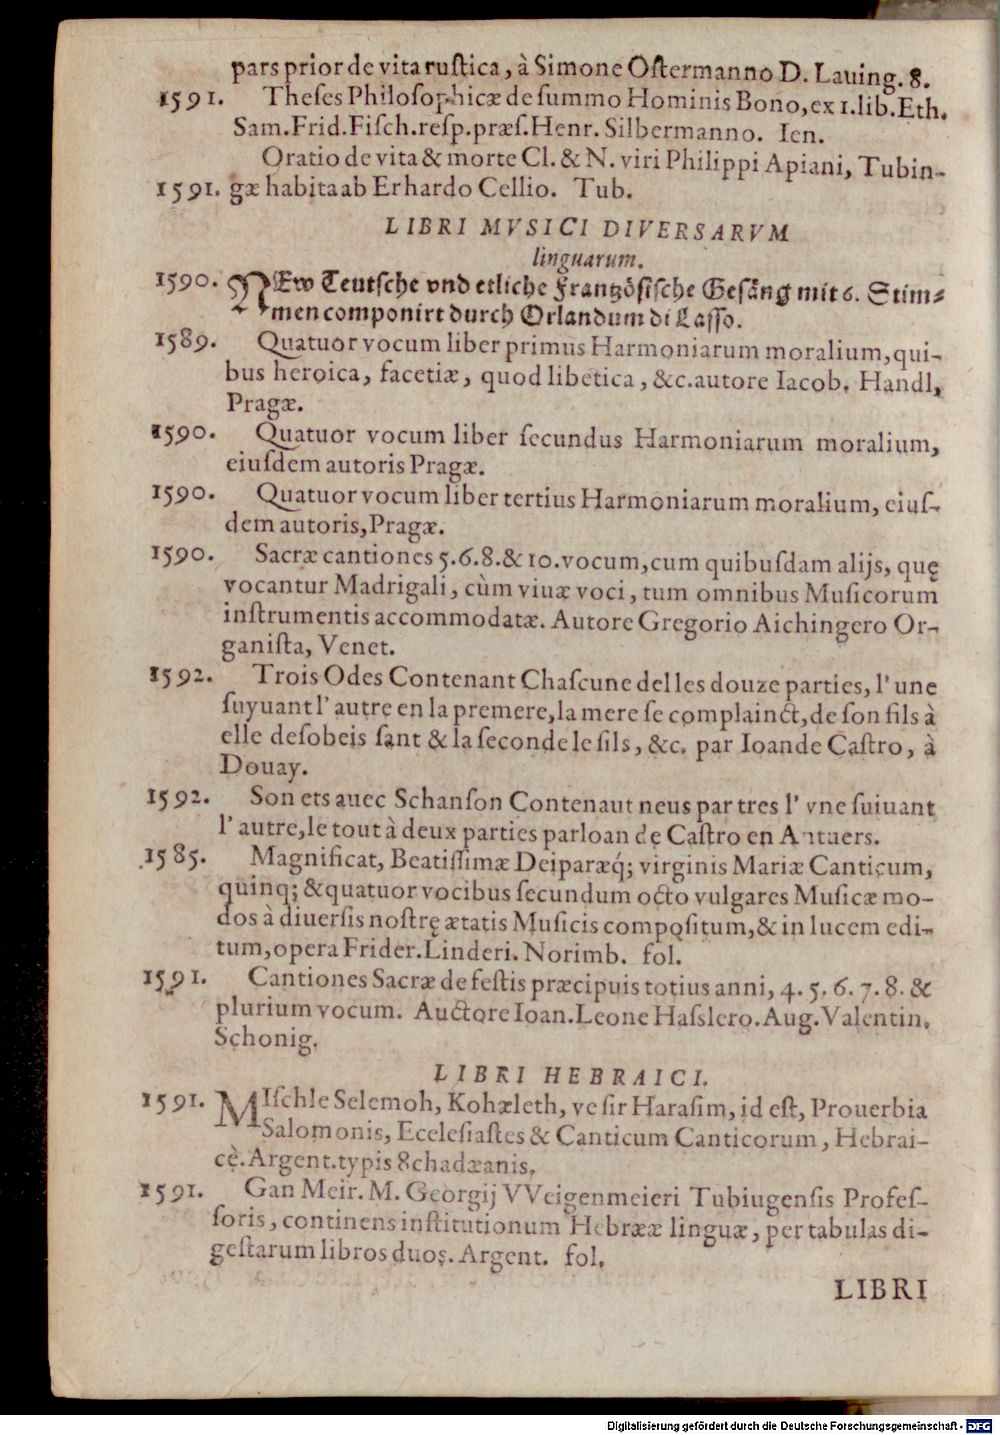 pars prior de vita rustica, à Simone Ostermanno D. Lauing. 8.
1591. Theses Philosophicæ de summo Hominis Bono, ex 1. lib. Eth.
Sam. Frid. Fisch. resp. præs. Henr. Silbermanno. Ien.
Oratio de vita & morte Cl. & N. viri Philippi Apiani, Tubin-
1591. gæ habita ab Erhardo Cellio. Tub.
LIBRI MVSICI DIVERSARVM
linguarum.
1590. NEw Teutsche vnd etliche Frantzösische Gesäng mit 6. Stim-
men componirt durch Orlandum di Lasso.
1589. Quatuor vocum liber primus Harmoniarum moralium, qui-
bus heroica, facetiæ, quod libetica, &c. autore Iacob. Handl,
Pragæ.
1590. Quatuor vocum liber secundus Harmoniarum moralium,
eiusdem autoris Pragæ.
1590. Quatuor vocum liber tertius Harmoniarum moralium, eius-
dem autoris, Pragæ.
1590. Sacræ cantiones 5. 6. 8. & 10. vocum, cum quibusdam alijs, quę
vocantur Madrigali, cùm viuæ voci, tum omnibus Musicorum
instrumentis accommodatæ. Autore Gregorio Aichingero Or-
ganista, Venet.
1592. Trois Odes Contenant Chascune delles douze parties, l' une
suyuant l' autre en la premere, la mere se complainct, de son fils à
elle desobeis sant & la seconde le fils, &c. par Ioan de Castro, à
Douay.
1592. Son ets auec Schanson Contenaut neus par tres l' vne suiuant
l' autre, le tout à deux parties par Ioan de Castro en Antuers.
1585. Magnificat, Beatissimæ Deiparæq́; virginis Mariæ Canticum,
quinq; & quatuor vocibus secundum octo vulgares Musicæ mo-
dos à diuersis nostrę ætatis Musicis compositum, & in lucem edi-
tum, opera Frider. Linderi. Norimb. fol.
1591. Cantiones Sacræ de festis præcipuis totius anni, 4. 5. 6. 7. 8. &
plurium vocum. Auctore Ioan. Leone Hasslero. Aug. Valentin.
Schonig.
LIBRI HEBRAICI.
1591. MIschle Selemoh, Kohæleth, ve sir Harasim, id est, Prouerbia
Salomonis, Ecelesiastes & Canticum Canticorum, Hebrai-
cè. Argent. typis 8chadæanis.
1591. Gan Meir. M. Georgij VVeigenmeieri Tubiugensis Profes-
soris, continens institutionum Hebrææ linguæ, per tabulas di-
gestarum libros duos. Argent. fol.
LIBRI
Digitalisierung gefördert durch die Deutsche Forschungsgemeinschaft - DFG